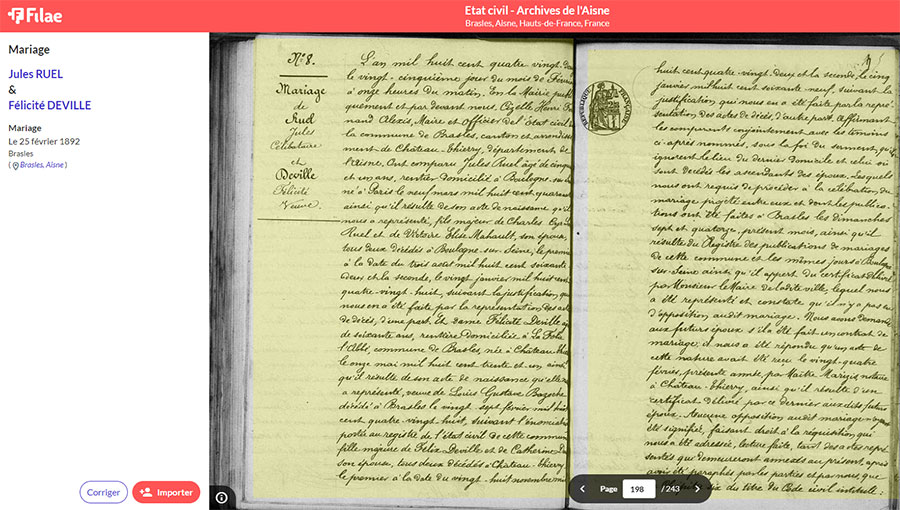 Filae
Etat civil - Archives de l'Aisne
Brasles, Aisne, Hauts-de-France, France
Mariage
Jules RUEL
&
Félicité DEVILLE
Mariage
Le 25 février 1892
Brasles
( Brasles, Aisne )
Corriger
Importer
N° 8.
Mariage
de
Ruel
Jules
Célibataire
et
Deville
Félicité
Veuve.
L'an mil huit cent quatre vingt
le vingt-cinquième jour du mois de Févri
à onze heures du matin, En la Mairie publi
quement et par devant nous, Henri
nand Alexis, Maire et Officier de l'Etat civil d
la commune de Brasles, canton et arrondis
ment de Château-Thierry, département de
l'Aisne, Ont comparu Jules Ruel âgé de cinqua
et un ans, rentier domicilié à Boulogne
né à Paris le neuf mars mil huit cent quarant
ainsi qu'il résulte de son acte de naissance qu'il
nous a représenté, fils majeur de Charles
Ruel et de Victoire Elisa Mahault, son épouse,
tous deux décédés à Boulogne-sur-Seine, le premi
à la date du trois août mil huit cent soixante
deux et la seconde, le vingt janvier mil huit cent
quatre-vingt-huit, suivant la justification qui
nous en a été faite par la représentation des act
de décès, d'une part, Et dame Félicité Deville
de soixante ans, rentière domiciliée à La
l'Abbé, commune de Brasles, née à Château
le onze mai mil huit cent trente et un ainsi
qu'il résulte de son acte de naissance qu'elle
a représenté, veuve de Louis Gustave
décédé à Brasles le vingt-sept février mil hui
cent quatre-vingt-huit, suivant l'énonciat
portée au registre de l'état civil de cette commun
fille majeure de Félix Deville et de Catherine
son épouse, tous deux décédés à Château-Thierry
le premier à la date du vingt-huit novembre
huit cent quatre-vingt-deux et la seconde, le cinq
janvier mil huit cent soixante neuf, suivant la
justification qui nous en a été faite par la repré
sentation des actes de décès, d'autre part. Affirmant
les comparants conjointement avec les témoins
ci-après nommés, sous la foi du serment, qu'ils
ignorent le lieu du dernier domicile et celui où
sont décédés les ascendants des époux. Lesquels
nous ont requis de procéder à la célébration du
mariage projeté entre eux et dont les publica
tions ont été faites à Brasles les dimanches
sept et quatorze, présent mois, ainsi qu'il
résulte du Registre des publications de mariages
de cette commune et les mêmes jours à Boulogne
sur-Seine ainsi qu'il appert du certificat délivré
par Monsieur le Maire de ladite ville, lequel nous
a été représenté et constate qu'il n'y a pas eu
d'opposition audit mariage. Nous avons demandé
aux futurs époux s'il a été fait un contrat de
mariage, il nous a été répondu qu'un acte de
cette nature avait été reçu le vingt-quatre
février, présente année, par Maître notaire
à Château-Thierry, ainsi qu'il résulte d'un
certificat délivré par ce dernier aux dits futurs
époux. Aucune opposition audit mariage
été signifiée, faisant droit à la réquisition qui
nous a été adressée, lecture faite, tant des actes repré
sentés qui demeureront annexés au présent, après
avoir été paraphés par les parties et par nous que
six du titre du Code civil intitulé
REPUBLIQUE FRANÇAISE
Page 198 / 243